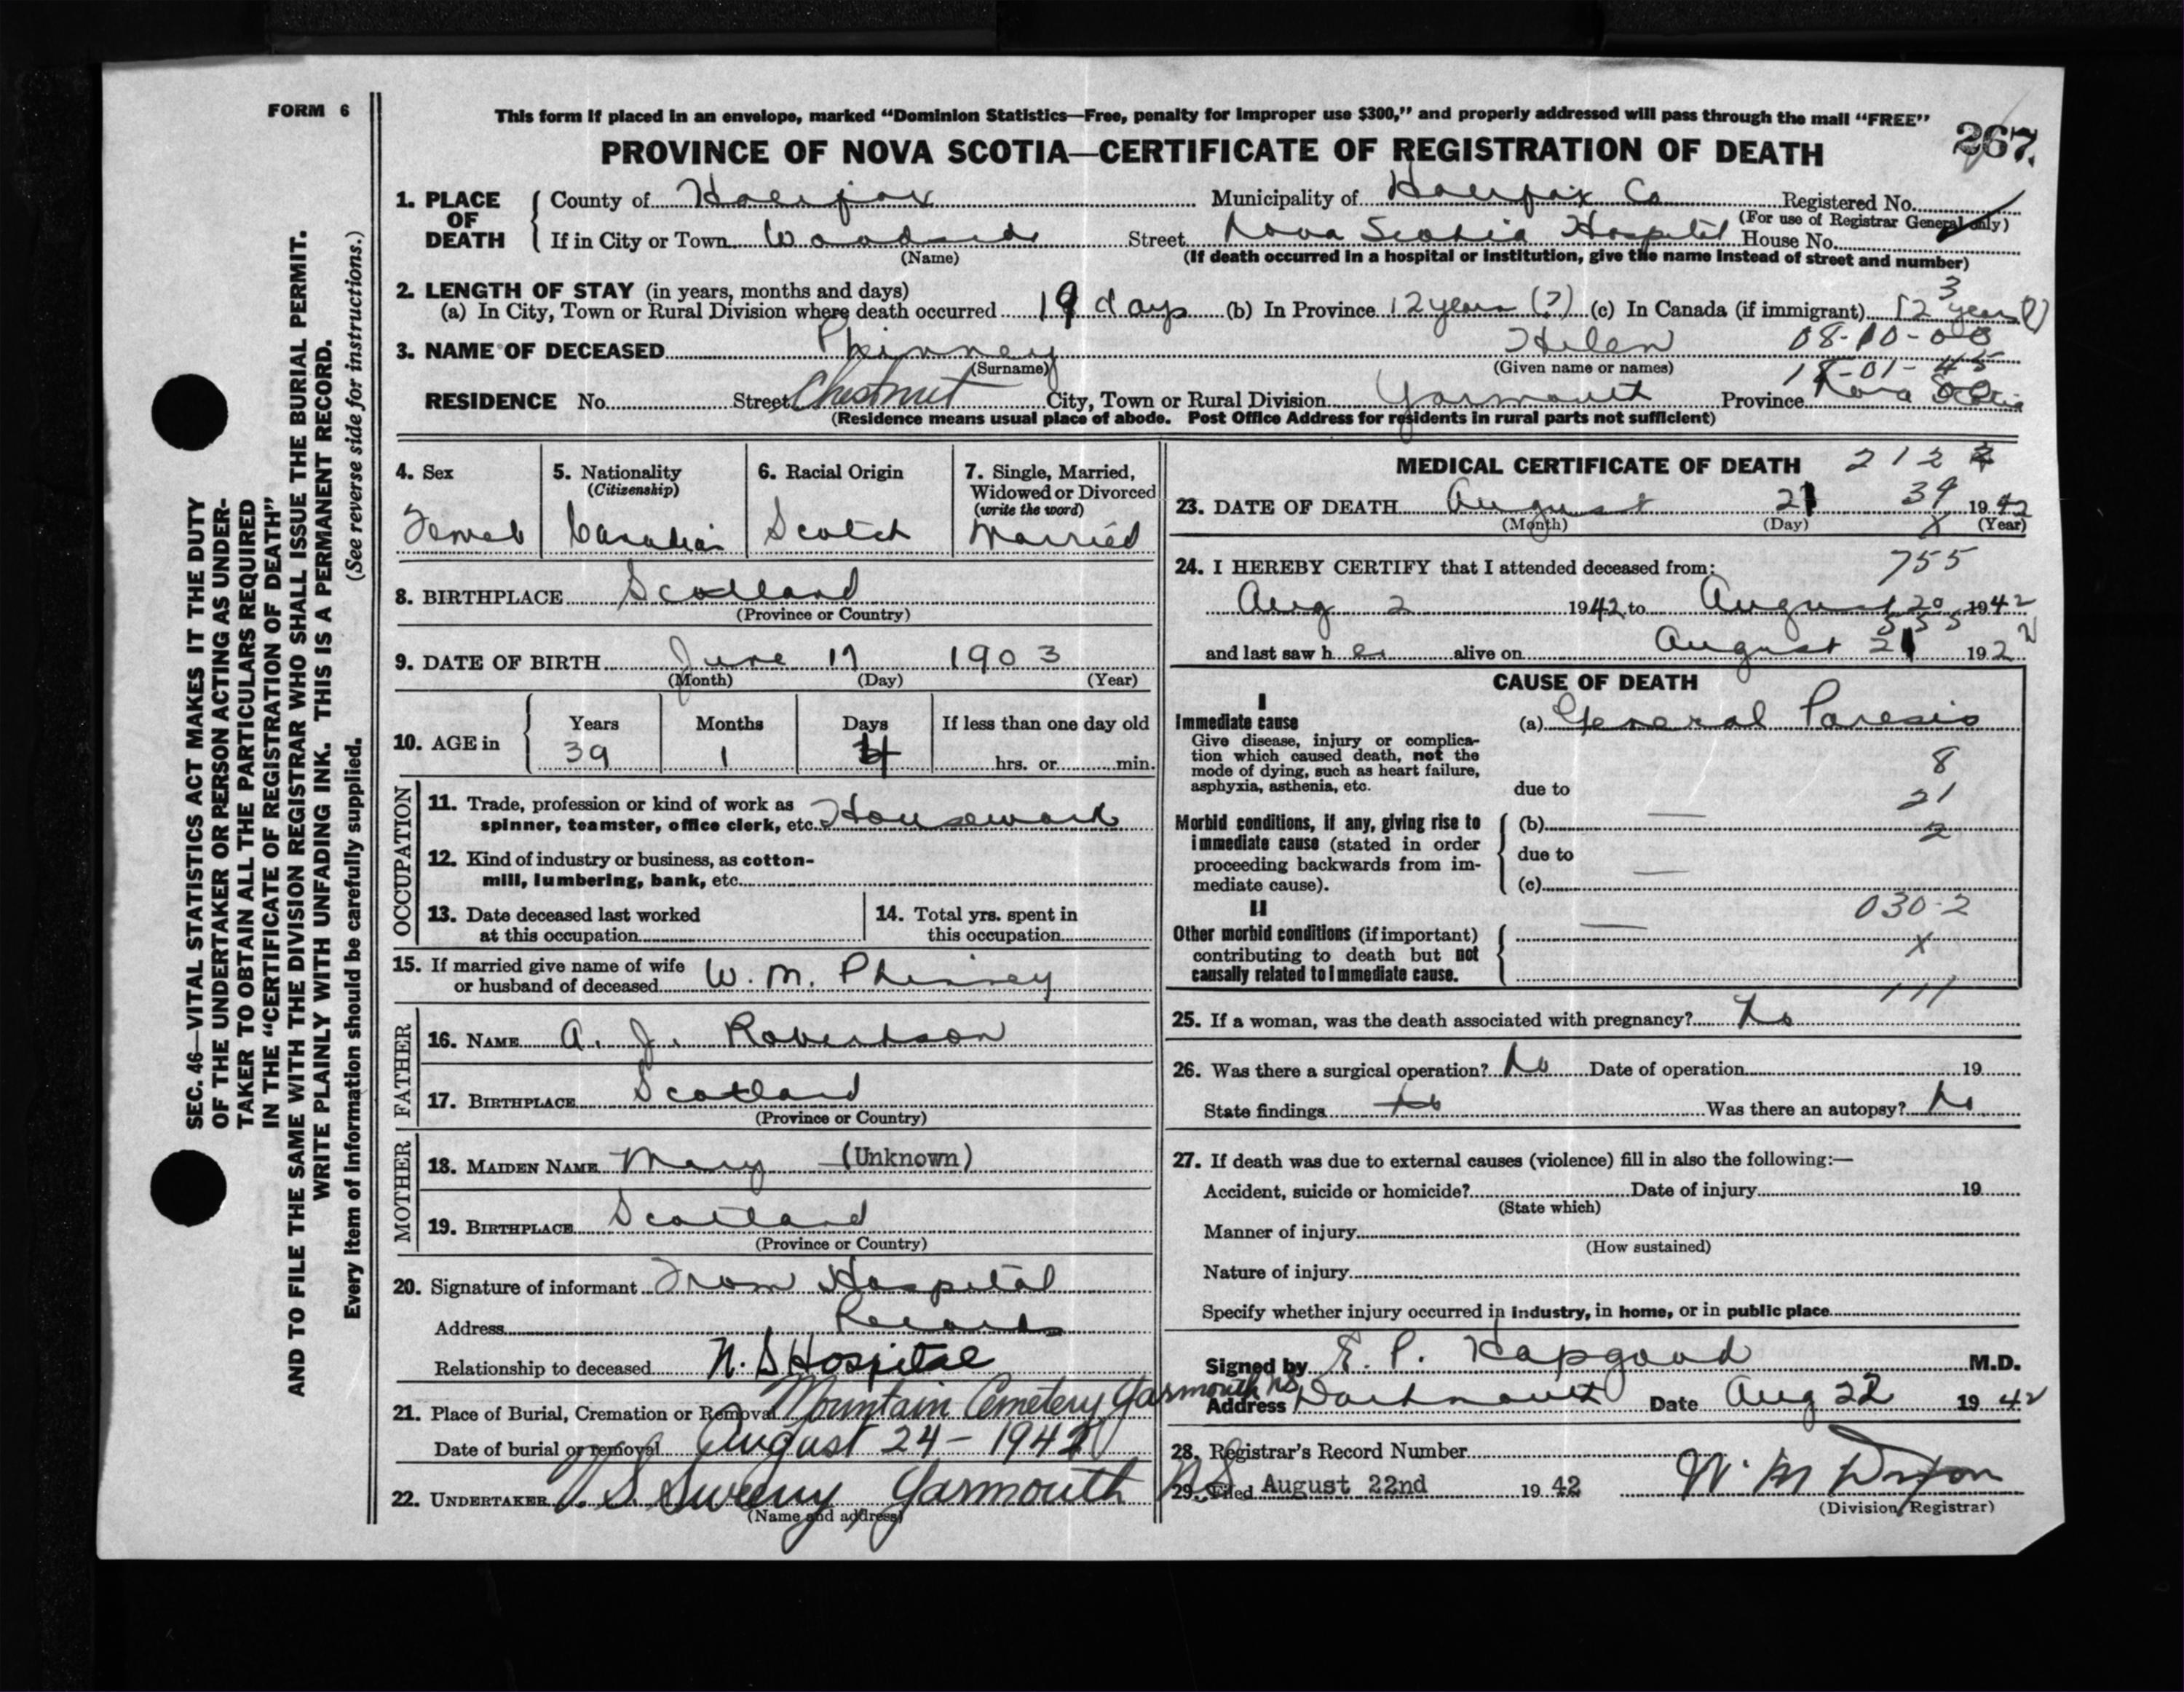 FORM 6
This form if placed in an envelope, marked “Dominion Statistics—Free, penalty for improper use $300,” and properly addressed will pass through the mail “FREE”
267.
PROVINCE OF NOVA SCOTIA—CERTIFICATE OF REGISTRATION OF DEATH
1. PLACE OF DEATH County of Halifax Municipality of Halifax Co Registered No.
(For use of Registrar General only)
If in City or Town Woodside Street Nova Scotia Hospital House No.
(Name) (If death occurred in a hospital or institution, give the name instead of street and number)
2. LENGTH OF STAY (in years, months and days)
(a) In City, Town or Rural Division where death occurred 19 days (b) In Province 12 years (?) (c) In Canada (if immigrant) 12 years (?)
3
3. NAME OF DECEASED Phinney Helen 08-10-00
(Surname) (Given name or names) 18-01-45
RESIDENCE No. Street Chestnut City, Town or Rural Division Yarmouth Province Nova Scotia
(Residence means usual place of abode. Post Office Address for residents in rural parts not sufficient)
4. Sex 5. Nationality (Citizenship) 6. Racial Origin 7. Single, Married, Widowed or Divorced (write the word)
Female Canadian Scotch Married
8. BIRTHPLACE Scotland
(Province or Country)
9. DATE OF BIRTH June 17 1903
(Month) (Day) (Year)
10. AGE in Years Months Days If less than one day old
39 1 4 hrs. or min.
OCCUPATION
11. Trade, profession or kind of work as
spinner, teamster, office clerk, etc. Housework
12. Kind of industry or business, as cotton-
mill, lumbering, bank, etc.
13. Date deceased last worked
at this occupation
14. Total yrs. spent in
this occupation
15. If married give name of wife
or husband of deceased W. M. Phinney
FATHER
16. NAME A. J. Robertson
17. BIRTHPLACE Scotland
(Province or Country)
MOTHER
18. MAIDEN NAME Mary (Unknown)
19. BIRTHPLACE Scotland
(Province or Country)
20. Signature of informant From Hospital
Address Records
Relationship to deceased N. S Hospital
21. Place of Burial, Cremation or Removal Mountain Cemetery Yarmouth NS
Date of burial or removal August 24 - 1942
22. UNDERTAKER V. S Sweeny Yarmouth NS
(Name and address)
MEDICAL CERTIFICATE OF DEATH 212
23. DATE OF DEATH August 21 39 1942
(Month) (Day) X (Year)
24. I HEREBY CERTIFY that I attended deceased from: 755
Aug 2 1942 to August 20 1942
555
and last saw her alive on August 21 192
CAUSE OF DEATH
I
Immediate cause (a) General Paresis
Give disease, injury or complica-
tion which caused death, not the
mode of dying, such as heart failure,
asphyxia, asthenia, etc.
8
due to
21
Morbid conditions, if any, giving rise to (b)
2
immediate cause (stated in order
proceeding backwards from im- due to
mediate cause). (c)
II
030-2
Other morbid conditions (if important)
X
contributing to death but not
causally related to immediate cause.
111
25. If a woman, was the death associated with pregnancy? No
26. Was there a surgical operation? No Date of operation 19
State findings No Was there an autopsy? No
27. If death was due to external causes (violence) fill in also the following:—
Accident, suicide or homicide? Date of injury 19
(State which)
Manner of injury
(How sustained)
Nature of injury
Specify whether injury occurred in industry, in home, or in public place
Signed by E. P. Hapgood M.D.
Address Dartmouth Date Aug 22 1942
28. Registrar's Record Number
29. Filed August 22nd 1942 W. M
(Division Registrar)
SEC. 46—VITAL STATISTICS ACT MAKES IT THE DUTY
OF THE UNDERTAKER OR PERSON ACTING AS UNDER-
TAKER TO OBTAIN ALL THE PARTICULARS REQUIRED
IN THE “CERTIFICATE OF REGISTRATION OF DEATH”
AND TO FILE THE SAME WITH THE DIVISION REGISTRAR WHO SHALL ISSUE THE BURIAL PERMIT.
WRITE PLAINLY WITH UNFADING INK. THIS IS A PERMANENT RECORD.
Every item of information should be carefully supplied. (See reverse side for instructions.)